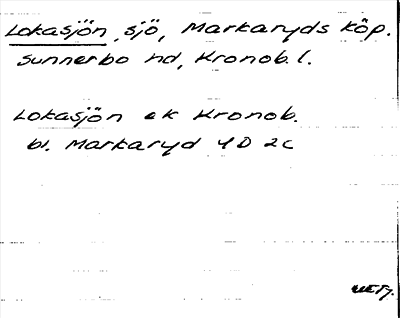 Lokasjön, sjö, Markaryds köp.
Sunnerbo hd, Kronob. l.
Lokasjön ek Kronob.
bl. Markaryd 4D 2c